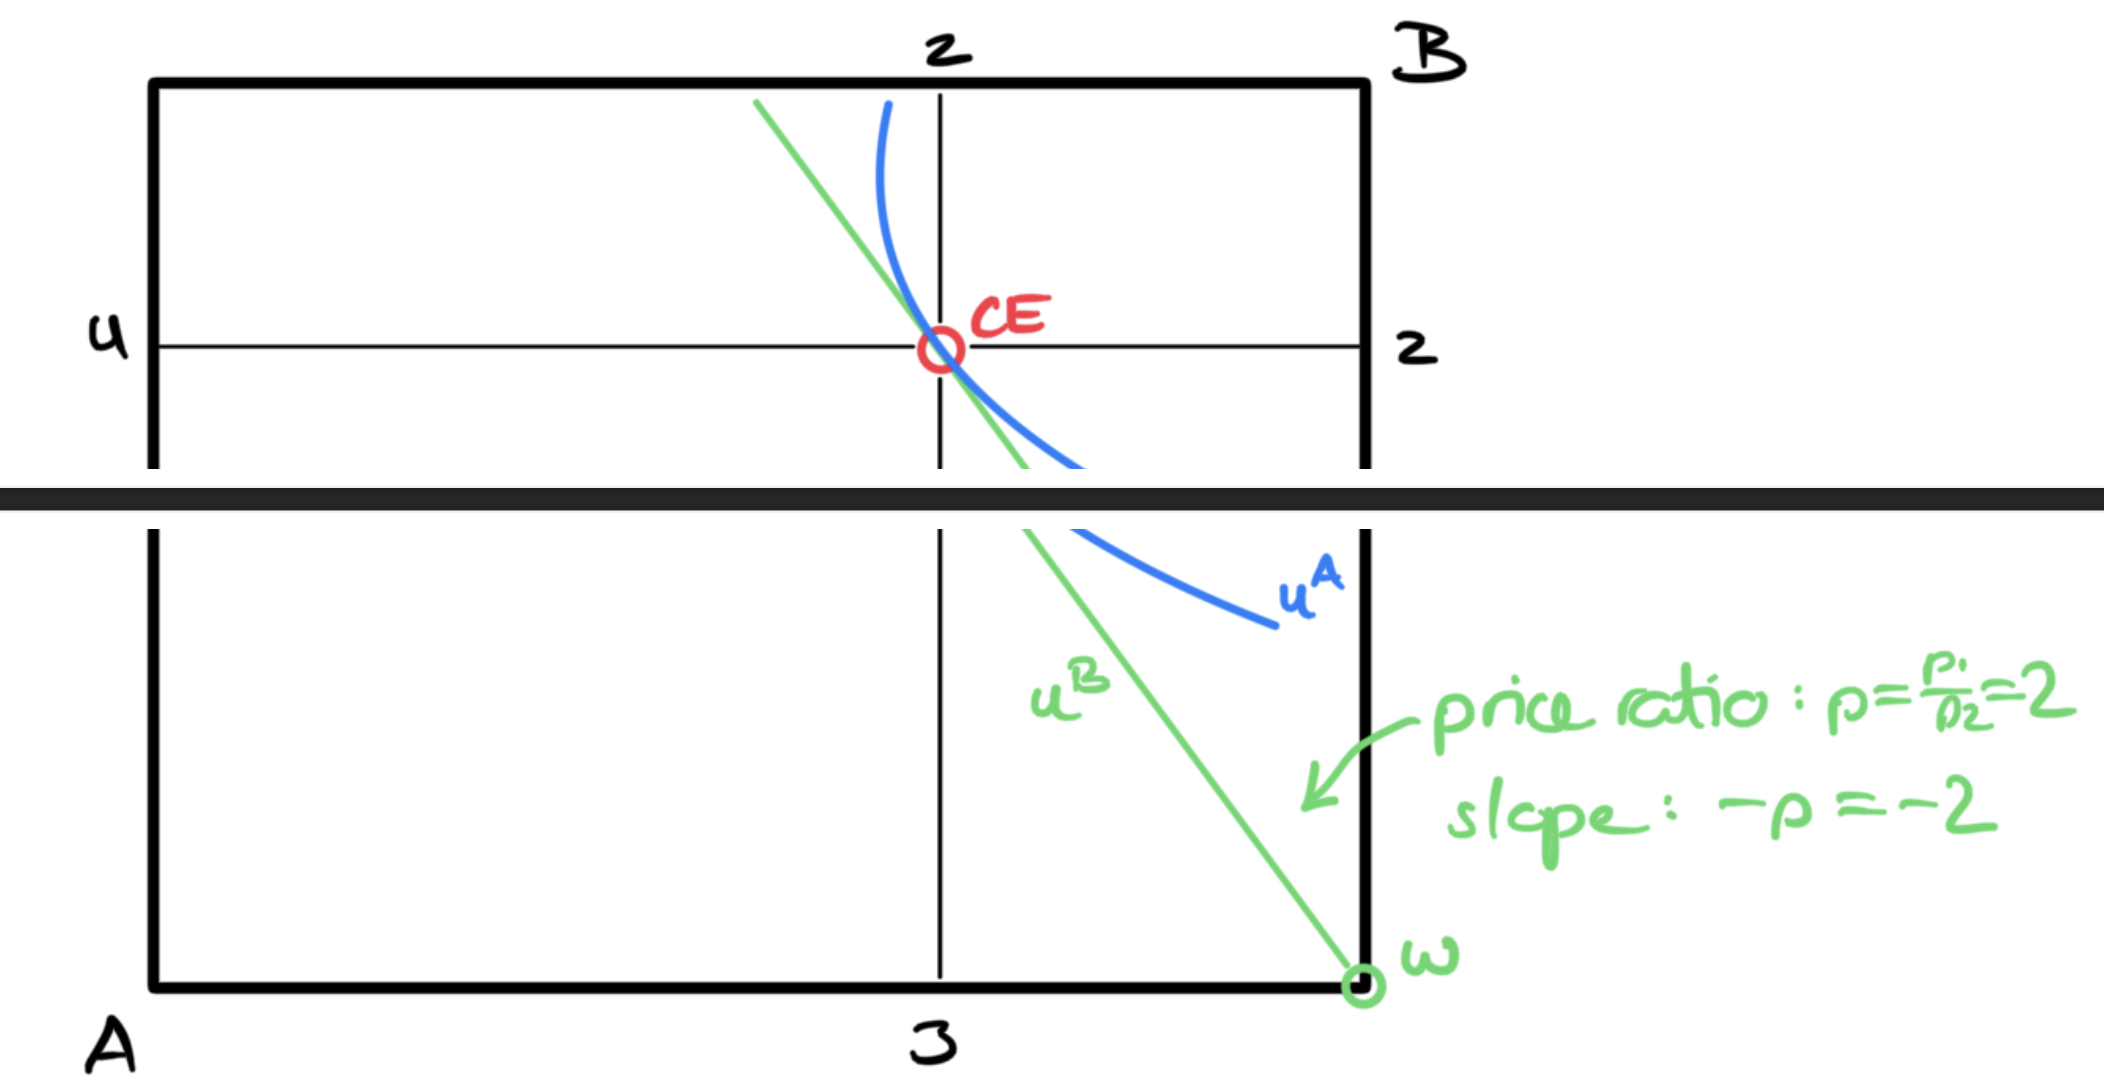 2
B
CE
4
2
u^A
u^B
price ratio: p = p₁/p₂ = 2
slope: -p = -2
ω
A
3